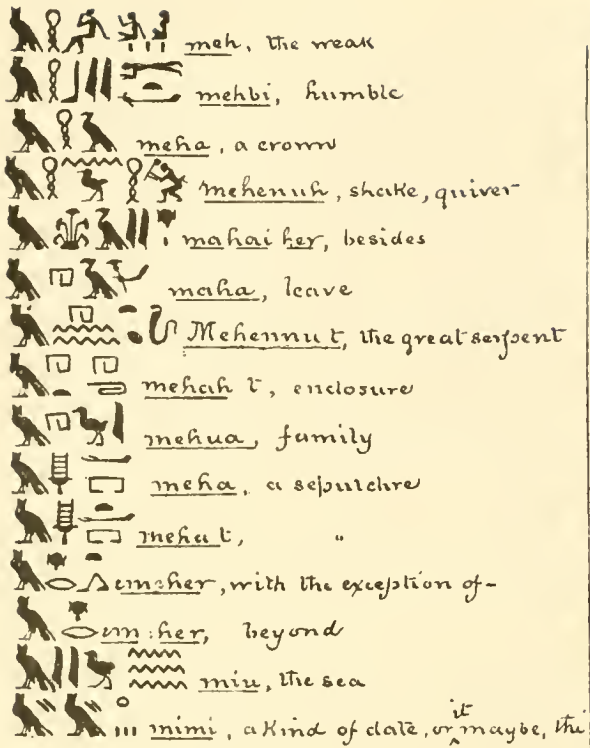 meh, the weak
mehbi, humble
meha, a crown
mehenuh, shake, quiver
mahai her, besides
maha, leave
Mehennu t, the great serpent
mehah t, enclosure
mehua, family
meha, a sepulchre
meha t, "
em:her, with the exception of-
em:her, beyond
miu, the sea
mimi, a kind of date, or it maybe, thi